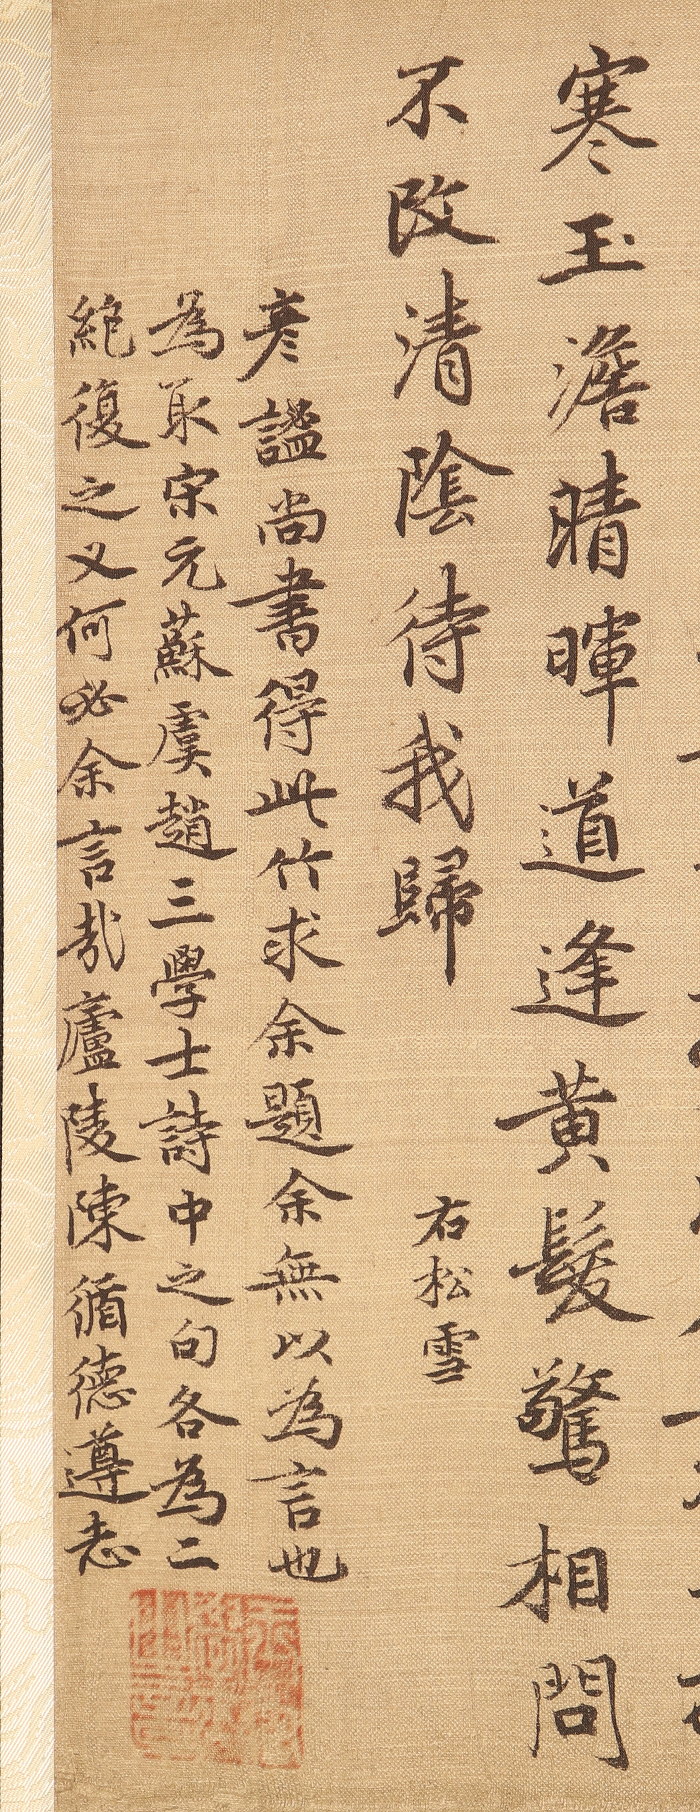 寒玉澹晴暉道逢黄髮驚相問
不改清陰待我歸
右松雪
彥謐尚書得此竹求余題余無以為言也
為取宋元蘇虞趙三學士詩中之句各為二
絶復之又何必余言哉廬陵陳循德遵志